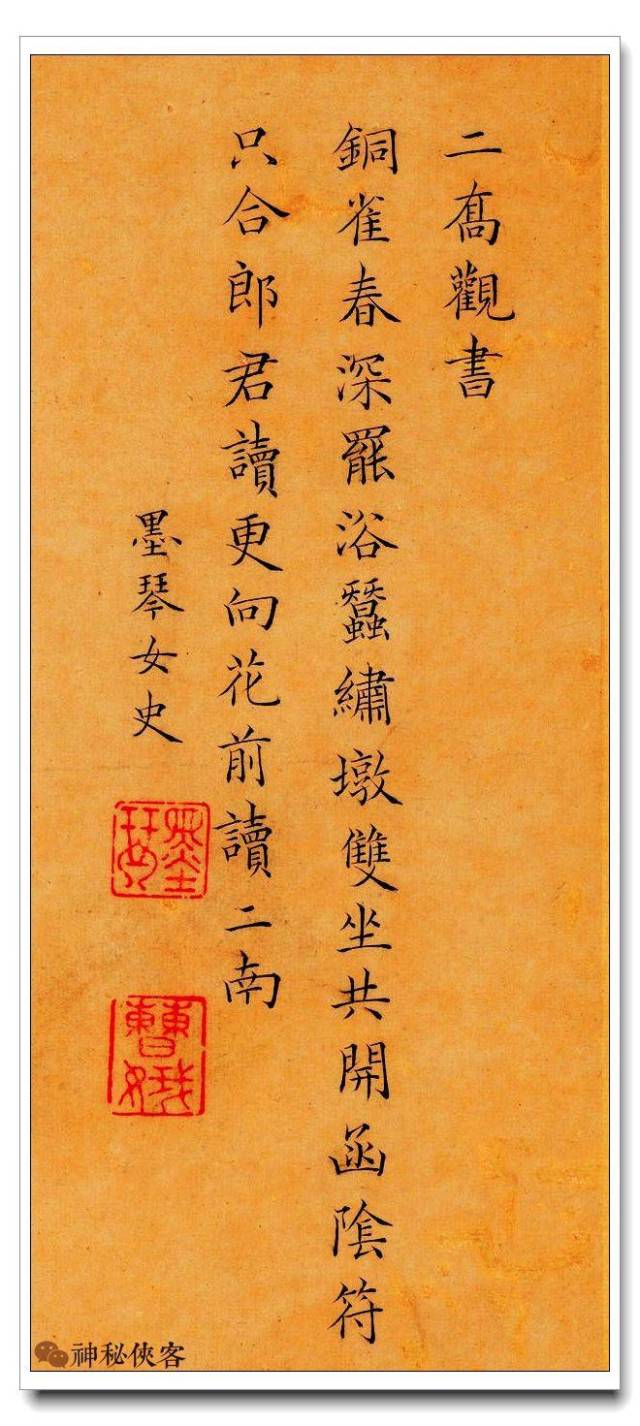 二喬觀書
銅雀春深罷浴蠶繡墩雙坐共開函陰符
只合郎君讀更向花前讀二南
墨琴女史
墨琴
神秘俠客